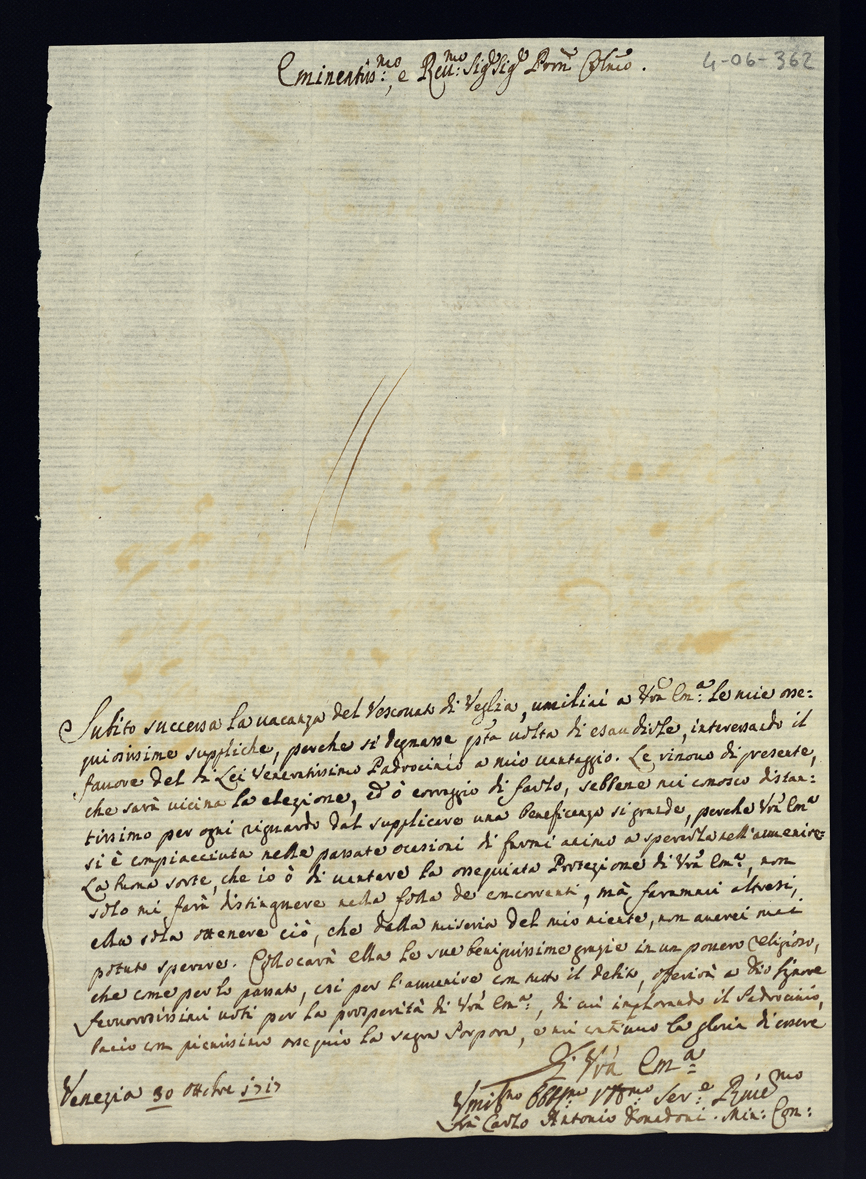 4-06-362
Eminentiss:mo, e Reu:mo Sigr Sigr Pron Colmo.
Subito successa la uacanza del Vescouat di Veglia, umiliai a Vra Em:a le mie osse=
quiosissime suppliche, perche si degnasse qsta uolta di esaudirle, interessando il
fauore del di Lei Veneratissimo Padrocinio a mio uantaggio. Le rinouo di presente,
che sarà uicina la elezione, ed ò corraggio di farlo, sebbene mi conosco distan=
tissimo per ogni riguardo dal supplicare una beneficenza si grande, perche Vra Ema
si è compiacciuta nelle passate ocasioni di farmi animo a sperarla nell'auuenire=
La buona sorte, che io ò di uantare la ossequiata Protezione di Vra Ema, non
solo mi farà distinguere nella folla de concorrenti, mà farammi altresi,
ella sola ottenere ciò, che dalla miseria del mio niente, non auerei mai
potuto sperare. Collocarà ella le sue benignissime grazie in un pouero religioso,
che come per lo passato, cosi per l'auuenire con tutto il debito, offerirà a Dio Signore
feruorosissimi uoti per la prosperità di Vra Ema:, di cui implorando il Padrocinio,
bacio con pienissimo ossequio la sagra Porpora, e mi continuo la gloria di essere
Di Vra Em:a
Venezia 30 Ottobre 1717
Vmilmo Obbmo Ser:e Riuermo
Fra Carlo Antonio Donadoni. Min: Con: